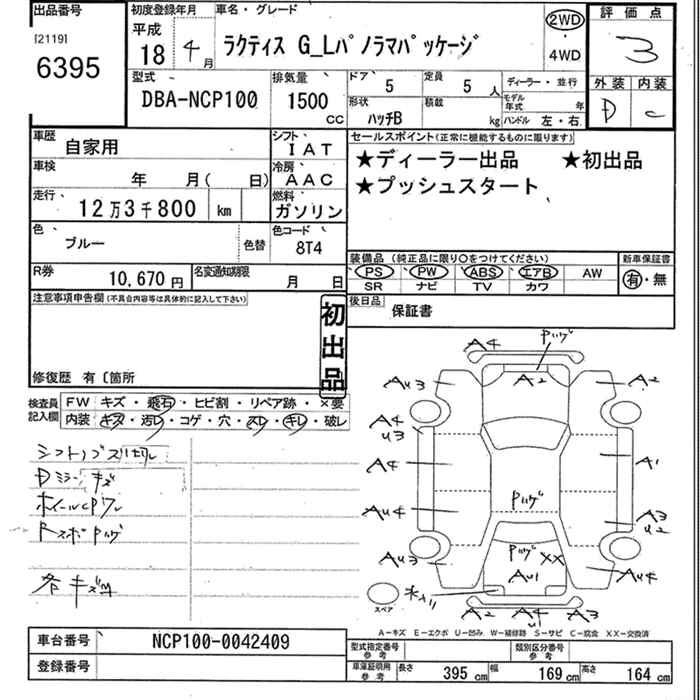 出品番号 初度登録年月 車名・グレード 評価点
[2119] 平成 2WD
6395 18年 4月 ラクティス G_Lパノラマパッケージ 4WD 3
型式 排気量 ドア 5 定員 5人 ディーラー・並行 外装 内装
DBA-NCP100 1500 CC 形状 ハッチB 積載 kg モデル年式 年 D C
ハンドル 左・右
車歴 自家用 シフト IAT セールスポイント(正常に機能するものに限ります)
車検 年 月( 日) 冷房 AAC ★ディーラー出品 ★初出品
走行 12万3千800 km 燃料 ガソリン ★プッシュスタート
色 ブルー 色替 色コード 8T4
装備品 (純正品に限り○をつけてください) 新車保証書
R券 10,670円 名変通知期限 月 日 PS PW ABS エアB AW 有・無
SR ナビ TV カワ
注意事項申告欄(不具合内容等は具体的に記入して下さい) 初出品 後日品 保証書
修復歴 有〔箇所
検査員記入欄 FW キズ・飛石・ヒビ割・リペア跡・×要
内装 キズ・汚レ・コゲ・穴・スレ・キレ・破レ
Dミラー キズ
各キズ
A4 A2 AU3 A2
A4 U3 A1
A4
AU4 A3 U2
AU3 XX AU1 AU4
A2 A4 U1 A3
スペア
A-キズ E-エクボ U-凹み W-補修跡 S-サビ C-腐食 XX-交換済
車台番号 NCP100-0042409 型式指定番号 参考 類別区分番号 参考
登録番号 車庫証明用 参考 長さ 395cm 幅 169cm 高さ 164cm